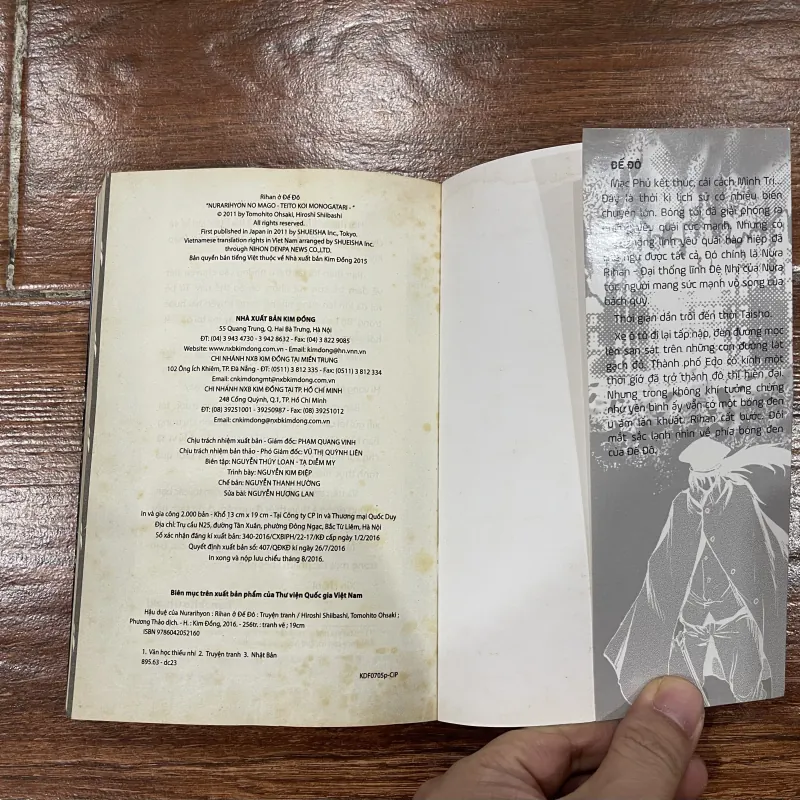 Rihan ở Đế Đô
"NURARIHYON NO MAGO - TEITO KOI MONOGATARI - "
© 2011 by Tomohito Ohsaki, Hiroshi Shiibashi
All rights reserved.
First published in Japan in 2011 by SHUEISHA Inc., Tokyo.
Vietnamese translation rights in Viet Nam arranged by SHUEISHA Inc.
through NIHON DENPA NEWS CO.,LTD.
Bản quyền bản tiếng Việt thuộc về Nhà xuất bản Kim Đồng 2015
NHÀ XUẤT BẢN KIM ĐỒNG
55 Quang Trung, Q. Hai Bà Trưng, Hà Nội
ĐT: (04) 3 943 4730 - 3 942 8632 - Fax: (04) 3 822 9085
Website: www.nxbkimdong.com.vn - Email: kimdong@hn.vnn.vn
CHI NHÁNH NXB KIM ĐỒNG TẠI MIỀN TRUNG
102 Ông Ích Khiêm, TP. Đà Nẵng - ĐT: (0511) 3 812 335 - Fax: (0511) 3 812 334
Email: cnkimdongmt@nxbkimdong.com.vn
CHI NHÁNH NXB KIM ĐỒNG TẠI TP. HỒ CHÍ MINH
248 Cống Quỳnh, Q.1, TP. Hồ Chí Minh
ĐT: (08) 39251001 - 39250987 - Fax: (08) 39251012
Email: cnkimdong@nxbkimdong.com.vn
Chịu trách nhiệm xuất bản - Giám đốc: PHẠM QUANG VINH
Chịu trách nhiệm bản thảo - Phó Giám đốc: VŨ THỊ QUỲNH LIÊN
Biên tập: NGUYỄN THÚY LOAN - TẠ DIỄM MY
Trình bày: NGUYỄN KIM ĐIỆP
Chế bản: NGUYỄN THANH HƯỜNG
Sửa bài: NGUYỄN HƯƠNG LAN
In và gia công 2.000 bản - Khổ 13 cm x 19 cm - Tại Công ty CP In và Thương mại Quốc Duy
Địa chỉ: Trụ cầu N25, đường Tân Xuân, phường Đông Ngạc, Bắc Từ Liêm, Hà Nội
Số xác nhận đăng kí xuất bản: 340-2016/CXBIPH/22-17/KĐ cấp ngày 1/2/2016
Quyết định xuất bản số: 407/QĐKĐ kí ngày 26/7/2016
In xong và nộp lưu chiểu tháng 8/2016.
Biên mục trên xuất bản phẩm của Thư viện Quốc gia Việt Nam
Hậu duệ của Nurarihyon : Rihan ở Đế Đô : Truyện tranh / Hiroshi Shiibashi, Tomohito Ohsaki ;
Phương Thảo dịch. - H. : Kim Đồng, 2016. - 256tr. : tranh vẽ ; 19cm
ISBN 9786042052160
1. Văn học thiếu nhi 2. Truyện tranh 3. Nhật Bản
895.63 - dc23
KDF0705p-CIP
ĐẾ ĐÔ
Mạc Phủ kết thúc, cải cách Minh Trị...
Đây là thời kì lịch sử có nhiều biến
chuyển lớn. Bóng tối đã giải phóng ra
yêu quái cực mạnh. Nhưng có
lĩnh yêu quái hào hiệp đã
ngự được tất cả. Đó chính là Nura
Rihan - Đại thống lĩnh Đệ Nhị của Nura
tộc, người mang sức mạnh vô song của
bách quỷ.
Thời gian dần trôi đến thời Taisho.
Xe ô tô đi lại tấp nập, đèn đường mọc
lên san sát trên những con đường lát
gạch đỏ. Thành phố Edo cổ kính một
thời giờ đã trở thành đô thị hiện đại.
Nhưng trong không khí tưởng chừng
như yên bình ấy vẫn có một bóng đen
u ám lẩn khuất. Rihan cất bước. Đôi
mắt sắc lạnh nhìn về phía bóng đen
của Đế Đô.